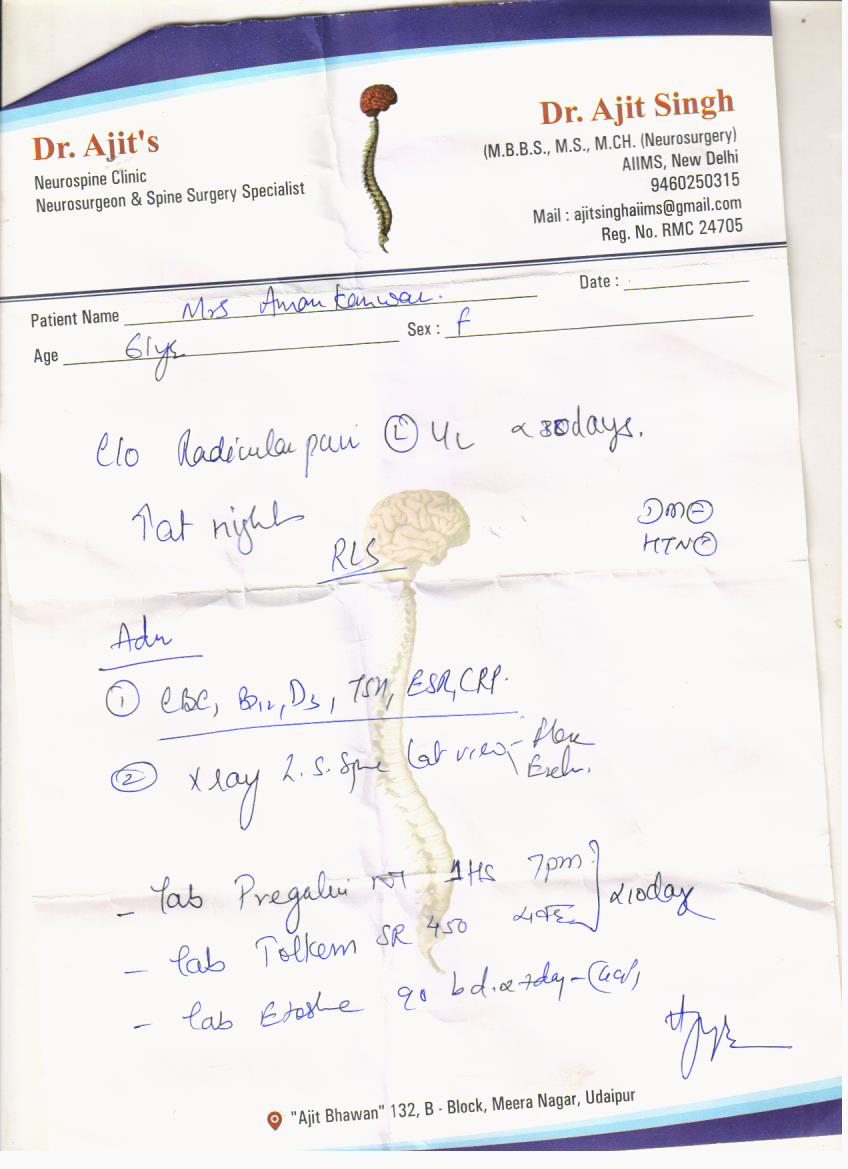 Dr. Ajit's
Neurospine Clinic
Neurosurgeon & Spine Surgery Specialist
Dr. Ajit Singh
(M.B.B.S., M.S., M.CH. (Neurosurgery)
AIIMS, New Delhi
9460250315
Mail : ajitsinghaiims@gmail.com
Reg. No. RMC 24705
Patient Name Mrs Aman Kanwar.
Date :
Age 61yr
Sex : f
C/o Radicular pain Ⓛ x 30days.
↑at night
DM
HTN
RLS
Adv
① CBC, B12, D3, TSH, ESR, CRP.
② Xray L.S. Spine Lat view
- Tab NT 1HS 7pm
x10day
- Tab Tolkem SR 450
- Tab 90 bd. x 7day
"Ajit Bhawan" 132, B - Block, Meera Nagar, Udaipur